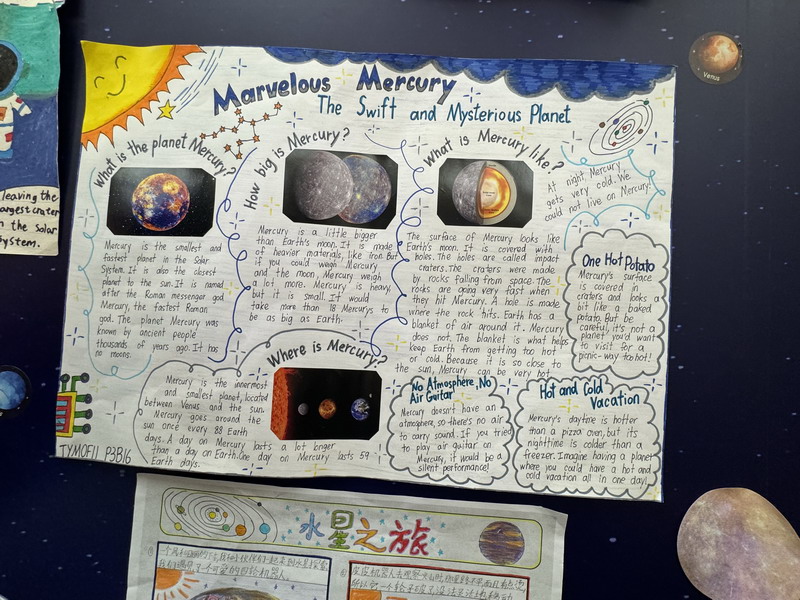 leaving the
largest crater
n the Solar
System.
Marvelous Mercury
The Swift and Mysterious Planet
Venus
What is the planet Mercury?
Mercury is the smallest and
fastest planet in the Solar
System. It is also the closest
planet to the sun. It is named
after the Roman messenger god
Mercury, the fastest Roman
god. The planet Mercury was
known by ancient people
thousands of years ago. It has
no moons.
How big is Mercury?
Mercury is a little bigger
than Earth's moon. It is made
of heavier materials, like iron. But
if you could weigh Mercury
and the moon, Mercury weigh
a lot more. Mercury is heavy,
but it is small. It would
take more than 18 Mercurys to
be as big as Earth.
What is Mercury like?
The surface of Mercury looks like
Earth's moon. It is covered with
holes. The holes are called impact
craters. The craters were made
by rocks falling from space. The
rocks are going very fast when
they hit Mercury. A hole is made
where the rock hits. Earth has a
blanket of air around it. Mercury
does not. The blanket is what helps
keep Earth from getting too hot
or cold. Because it is so close to
the sun, Mercury can be very hot.
At night, Mercury
gets very cold. We
could not live on Mercury.
One Hot Potato
Mercury's surface
is covered in
craters and looks a
bit like a baked
potato. But be
careful, it's not a
planet you'd want
to visit for a
picnic- way too hot!
Where is Mercury?
Mercury is the innermost
and smallest planet, located
between Venus and the sun.
Mercury goes around the
sun once every 88 Earth
days. A day on Mercury lasts a lot longer
than a day on Earth. One day on Mercury lasts 59
Earth days.
No Atmosphere, No
Air Guitar
Mercury doesn't have an
atmosphere, so there's no air
to carry sound. If you tried
to play air guitar on
Mercury, it would be a
silent performance!
Hot and Cold
Vacation
Mercury's daytime is hotter
than a pizza oven, but its
nighttime is colder than a
freezer. Imagine having a planet
where you could have a hot and
cold vacation all in one day!
TYMOFII P3B16
水星之旅